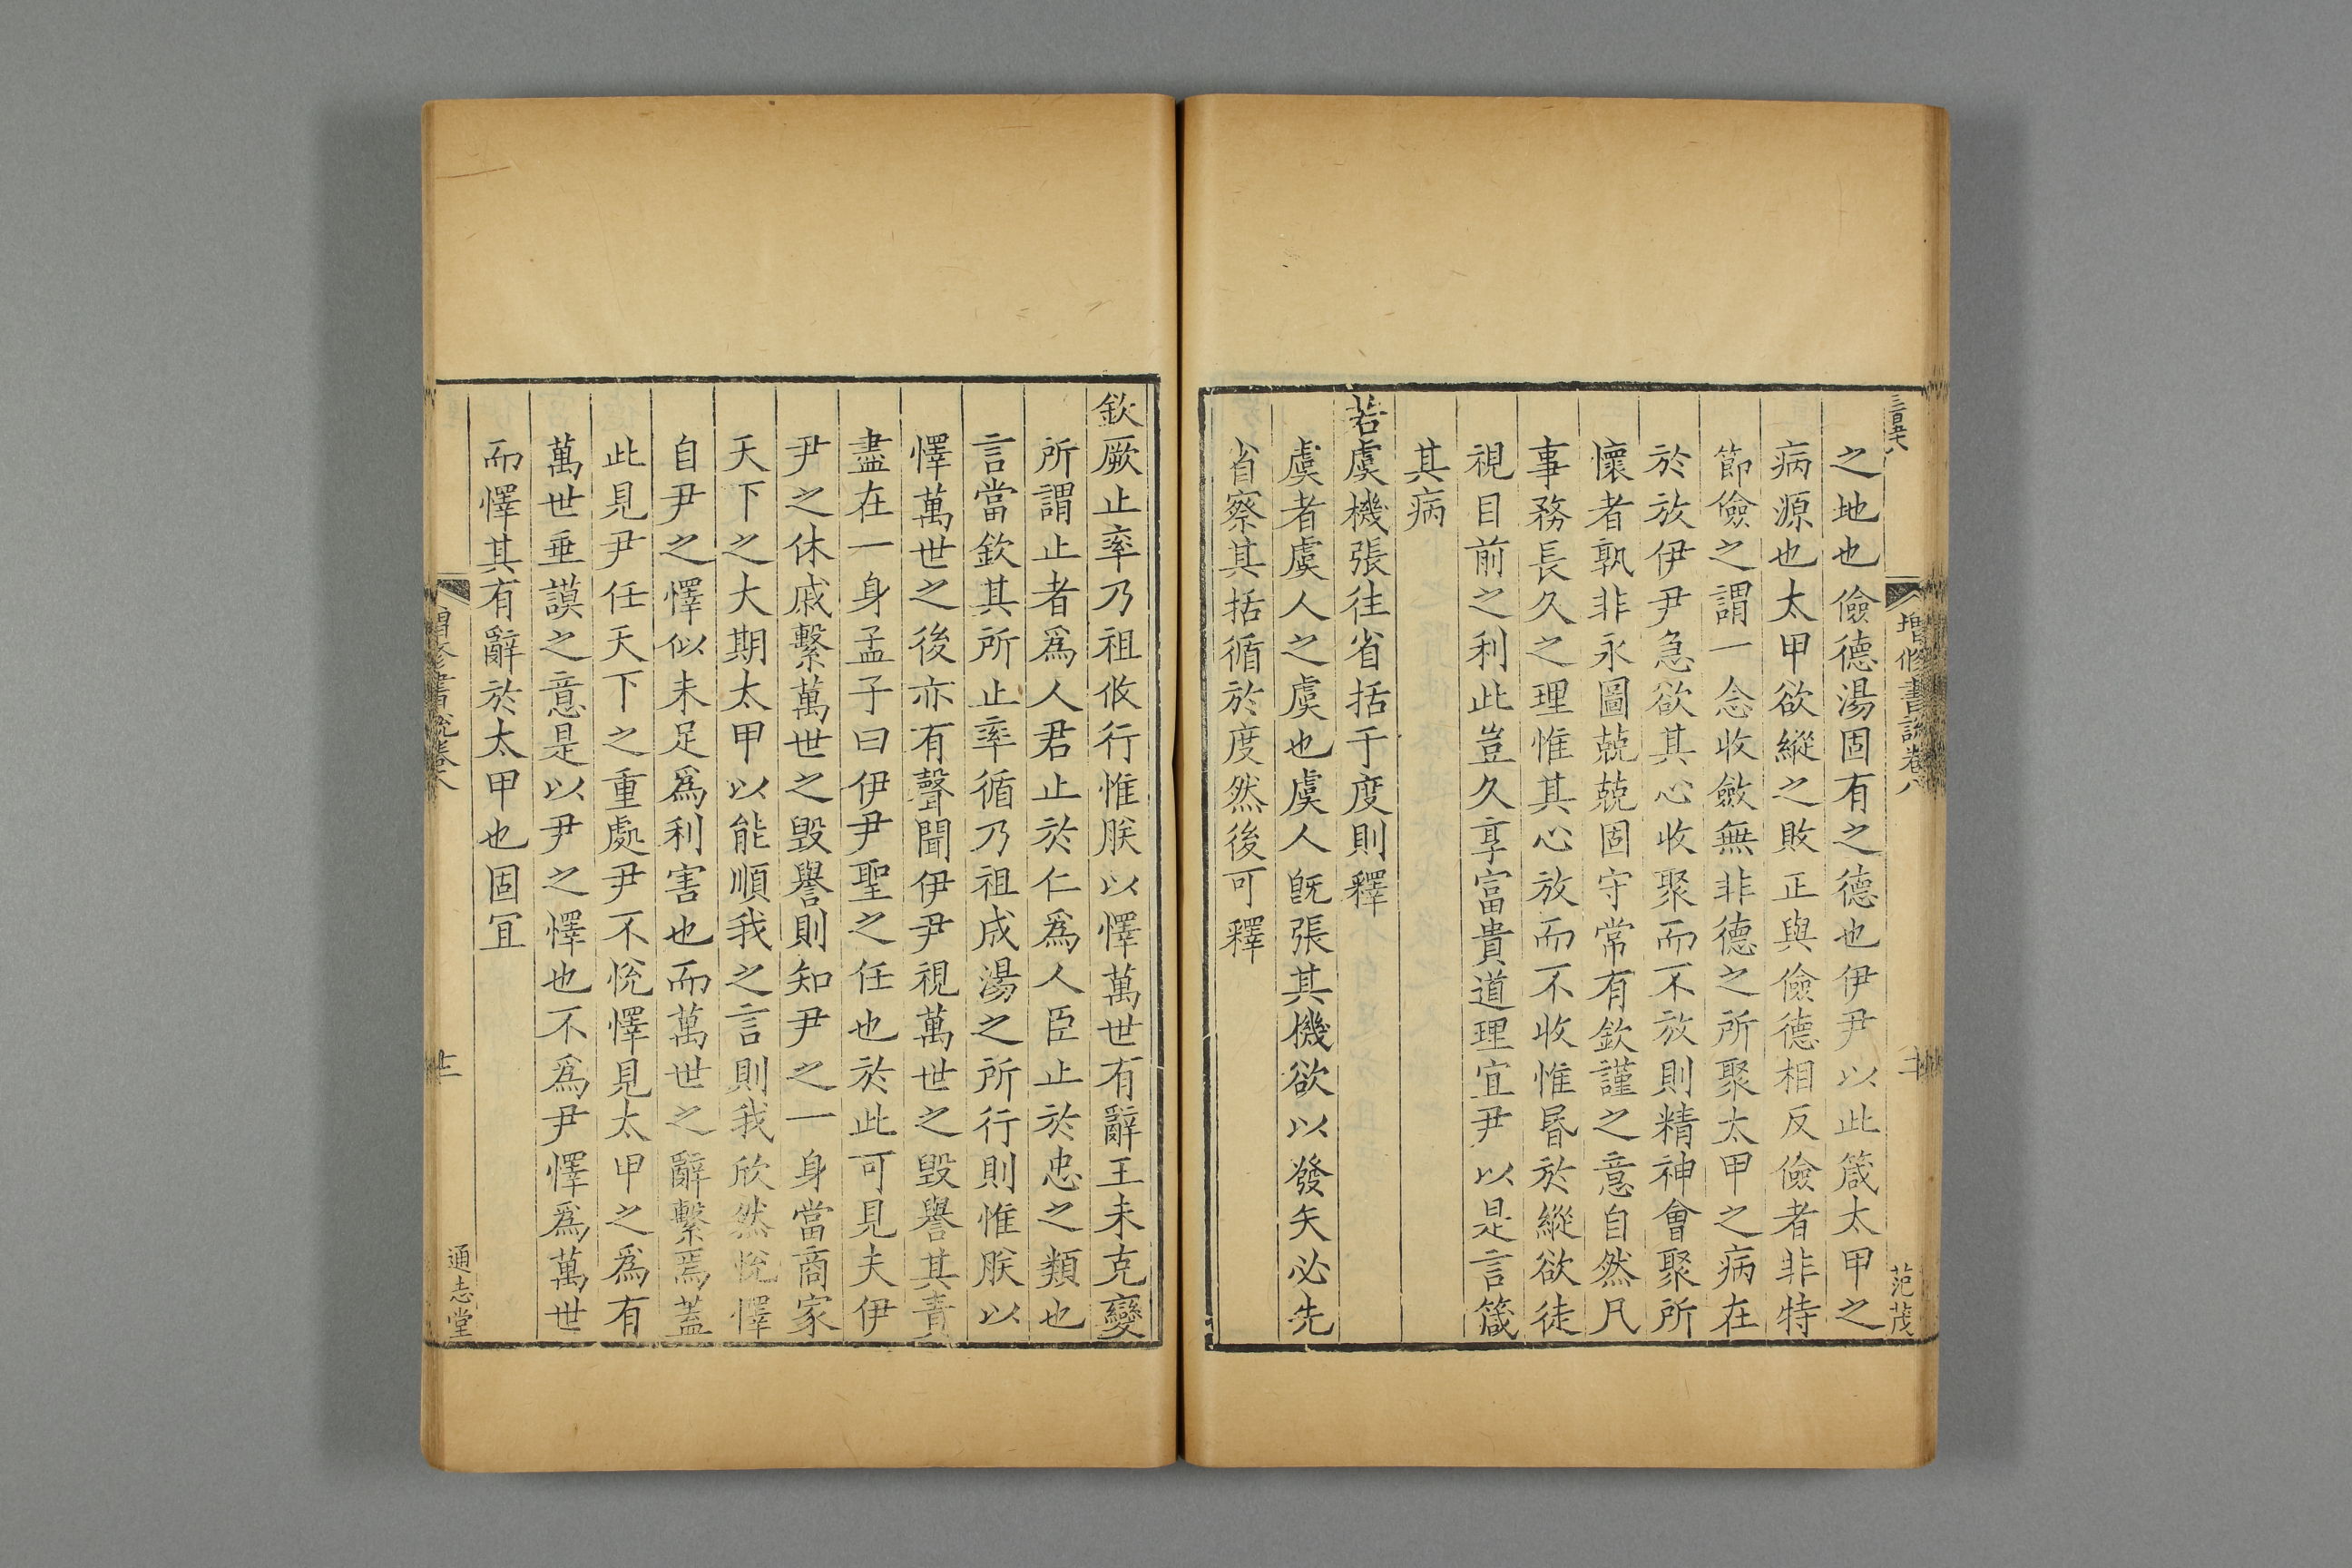 三百六八
增修書說卷八
二十
范茂
之地也儉德湯固有之德也伊尹以此箴太甲之
病源也太甲欲縱之敗正與儉德相反儉者非特
節儉之謂一念收斂無非德之所聚太甲之病在
於放伊尹急欲其心收聚而不放則精神會聚所
懷者孰非永圖兢兢固守常有欽謹之意自然凡
事務長久之理惟其心放而不收惟昬於縱欲徒
視目前之利此豈久享富貴道理宜尹以是言箴
其病
若虞機張往省括于度則釋
虞者虞人之虞也虞人旣張其機欲以發矢必先
省察其括循於度然後可釋
欽厥止率乃祖攸行惟朕以懌萬世有辭王未克變
所謂止者爲人君止於仁爲人臣止於忠之類也
言當欽其所止率循乃祖成湯之所行則惟朕以
懌萬世之後亦有聲聞伊尹視萬世之毀譽其責
盡在一身孟子曰伊尹聖之任也於此可見夫伊
尹之休戚繫萬世之毀譽則知尹之一身當商家
天下之大期太甲以能順我之言則我欣然悅懌
自尹之懌似未足爲利害也而萬世之辭繫焉蓋
此見尹任天下之重處尹不悅懌見太甲之爲有
萬世垂謨之意是以尹之懌也不爲尹懌爲萬世
而懌其有辭於太甲也固宜
增修書說卷八
廿一
通志堂